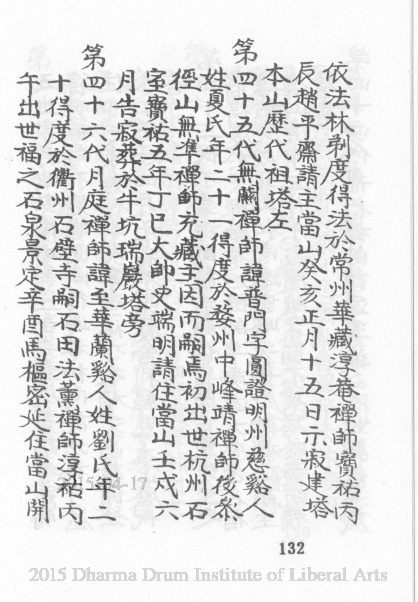 依法林剃度得法於常州華藏淳菴禪師寶祐丙
辰趙平齋請主當山癸亥正月十五日示寂建塔
本山歷代祖塔左
第四十五代無關禪師諱普門字圓證明州慈谿人
姓夏氏年二十一得度於婺州中峰靖禪師後參
徑山無準禪師充藏主因而嗣焉初出世杭州石
室寶祐五年丁巳大師史瑞明請住當山壬戌六
月告寂葬於牛坑瑞巖塔旁
第四十六代月庭禪師諱至華蘭谿人姓劉氏年二
十得度於衢州石壁寺嗣石田法薰禪師淳祐丙
午出世福之石泉景定辛酉馬樞密延住當山開
132
2015 Dharma Drum Institute of Liberal Arts